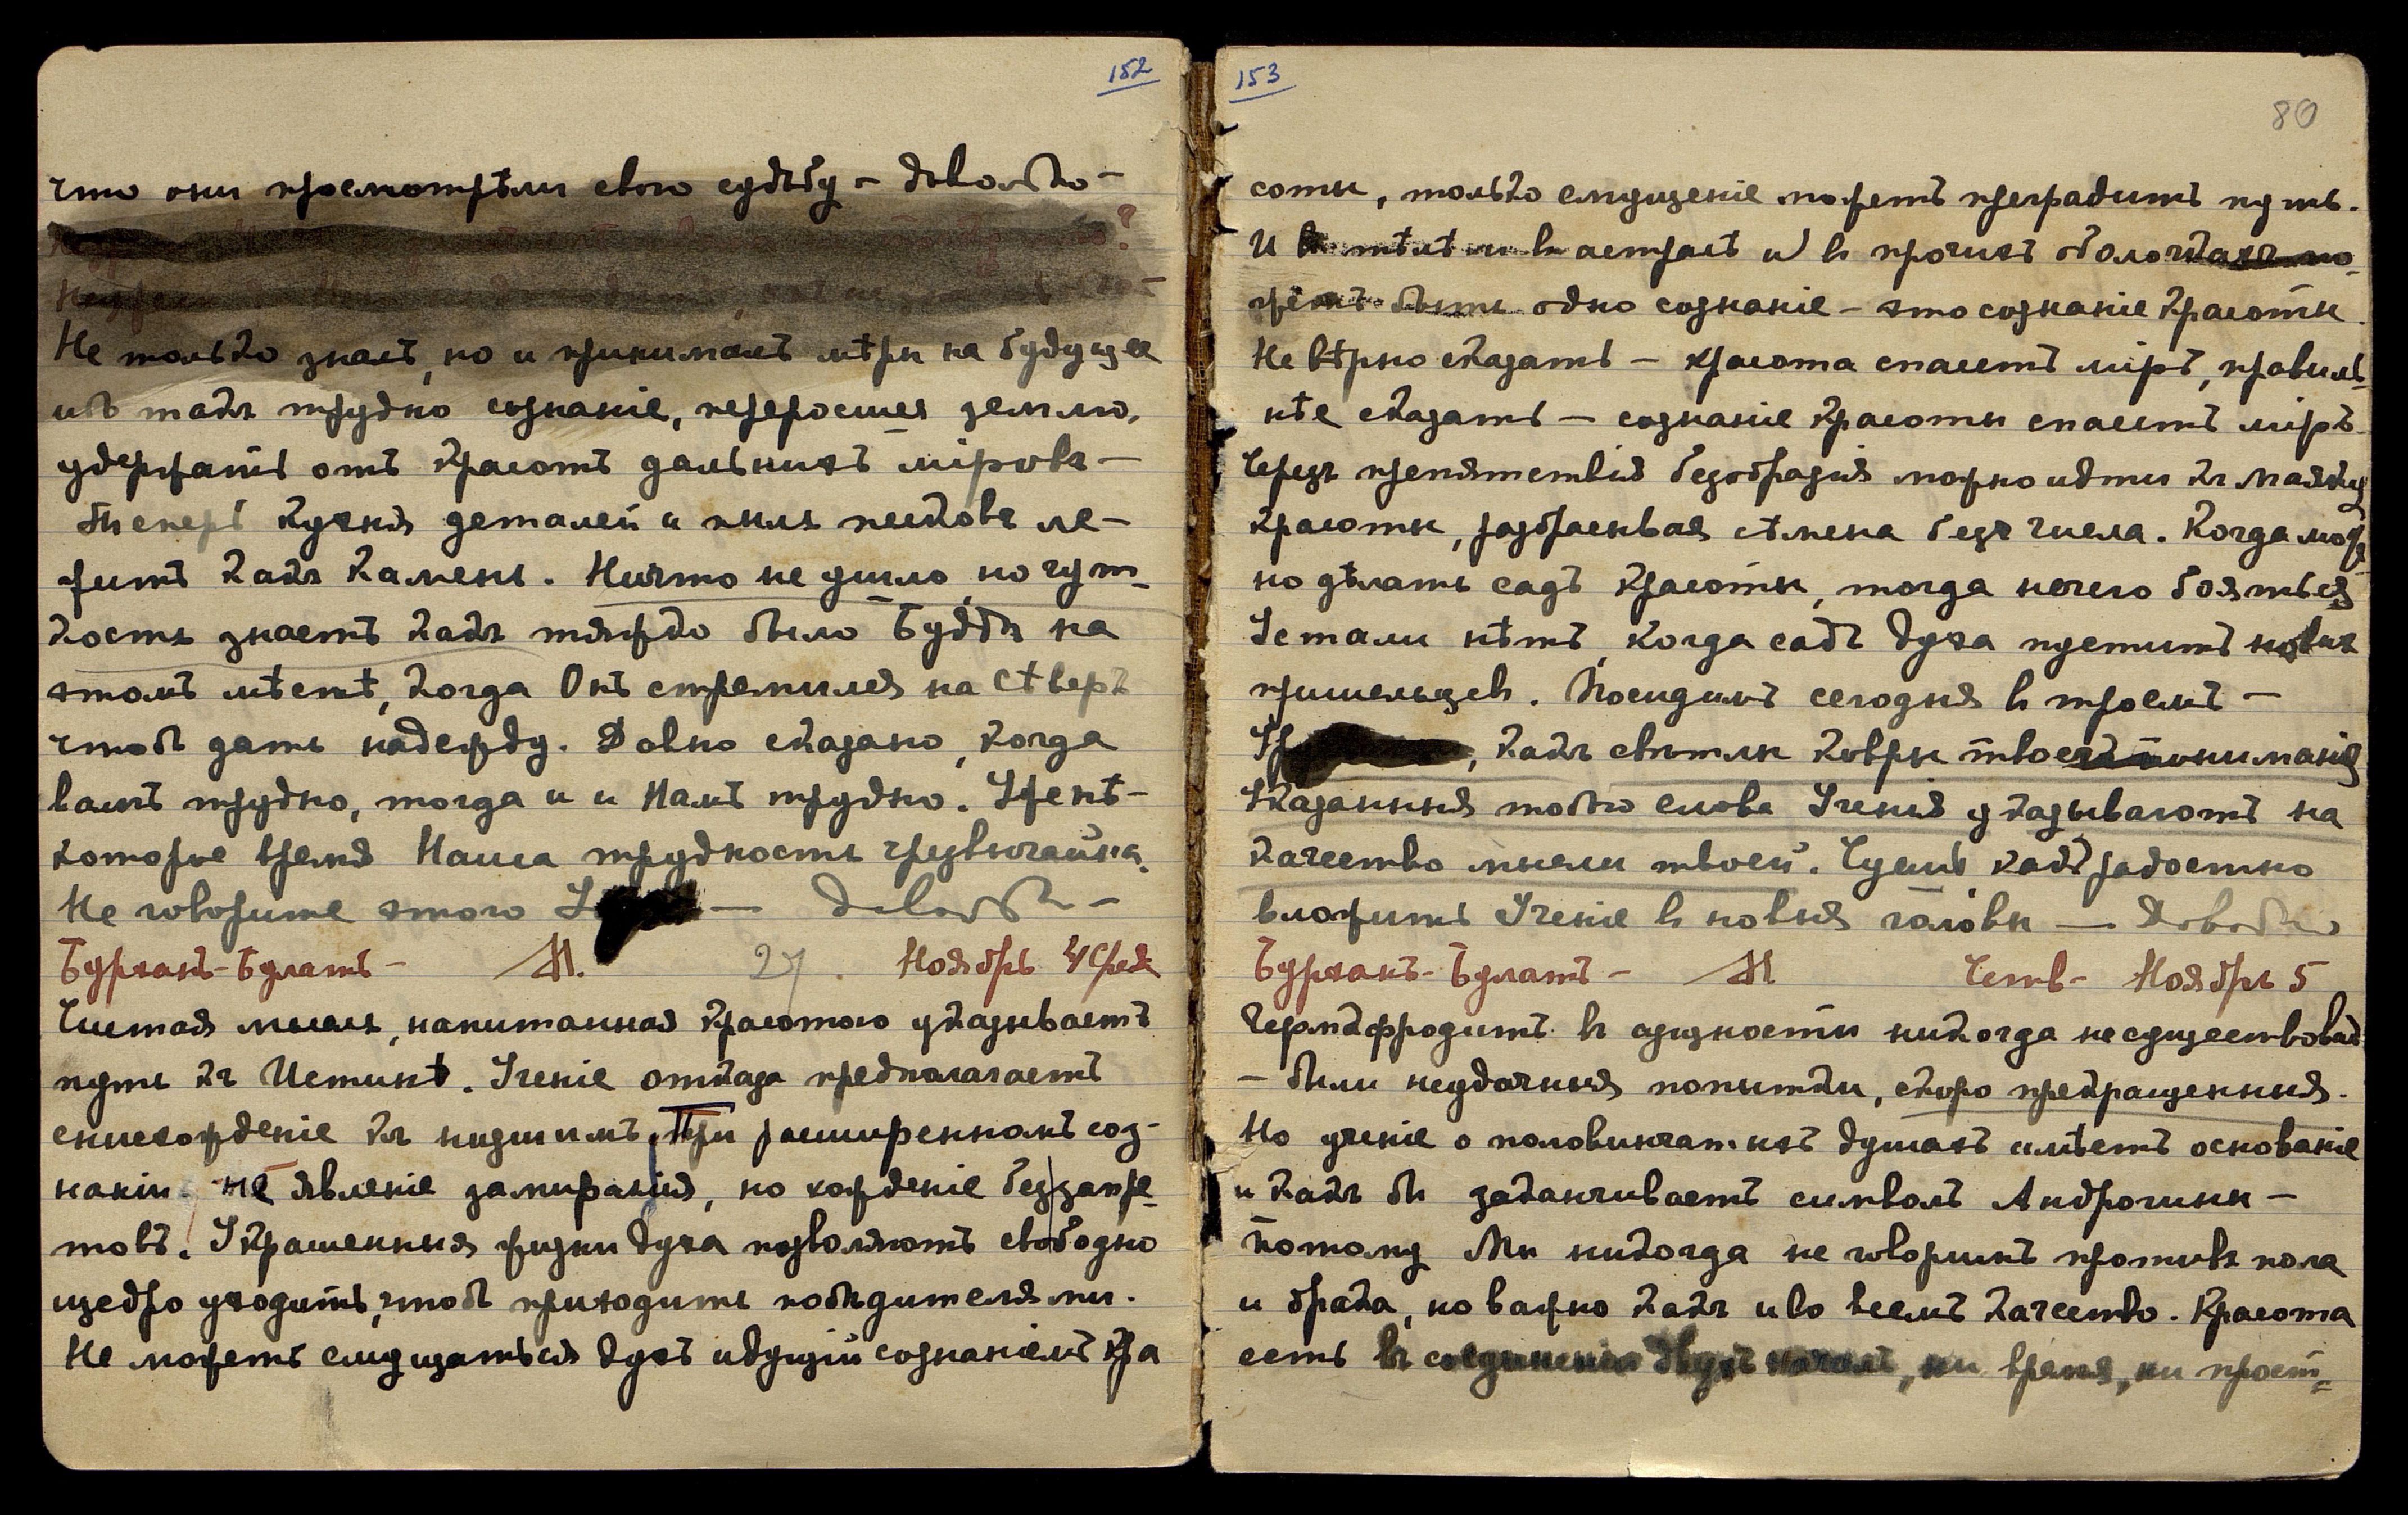 152
что они просмотрѣли свою судьбу – довольно –
Не только знаемъ, но и принимаемъ мѣры на будущее
ибо такъ трудно сознаніе, переросшее землю,
удержать отъ красотъ дальнихъ міровъ –
Теперь кучка деталей и пыль песковъ ле-
житъ какъ камень. Ничто не ушло, но чут-
кость знаетъ какъ тяжко было Буддѣ на
этомъ мѣстѣ, когда Онъ стремился на Сѣверъ
чтобъ дать надежду. Давно сказано, когда
вамъ трудно, тогда и и Намъ трудно. Уже нѣ-
которое время Наша трудность чрезвычайна.
Не говорите этого – довольно –
Бурханъ-Булатъ – М. 27. Ноябрь 4 Среда
Чистая мысль, напитанная красотою указываетъ
путь къ Истинѣ. Ученіе отказа предполагаетъ
снисхожденіе къ низшимъ. При расширенномъ соз-
наніи не явленіе замиранія, но хожденіе безъ запре-
товъ. Украшенныя жизни духа позволяютъ свободно
щедро уходить, чтобъ приходить побѣдителями.
Не можетъ смущаться духъ идущій сознаніемъ кра
153
80
соты, только смущеніе можетъ преградить путь.
И въ тѣлѣ и въ астралѣ и въ прочихъ оболочкахъ мо-
жетъ быть одно сознаніе – это сознаніе красоты.
Не вѣрно сказать – красота спасетъ міръ, правиль-
нѣе сказать – сознаніе красоты спасетъ міръ.
Черезъ препятствія безобразія можно идти къ маяку
красоты, разбрасывая сѣмена безъ числа. Когда мож-
но дѣлать садъ красоты, тогда нечего бояться
Устали нѣтъ, когда садъ духа пуститъ новыхъ
пришельцевъ. Посидимъ сегодня въ троемъ –
, какъ свѣтлы ковры твоего пониманія
Указанныя тобою слова Ученія указываютъ на
качество мысли твоей. Чуемъ какъ радостно
вложить Ученіе въ новыя головы – довольно
Бурханъ-Булатъ – М Четв – Ноябрь 5
Гермафродитъ въ сущности никогда не существовалъ
– были неудачныя попытки, скоро прекращенныя.
Но ученіе о половинчатыхъ душахъ имѣетъ основаніе
и какъ бы заканчиваетъ символъ Андрогины –
Потому Мы никогда не говоримъ противъ пола
и брака, но важно какъ и во всемъ качество. Красота
есть въ соединеніи двухъ началъ, ни время, ни прост-